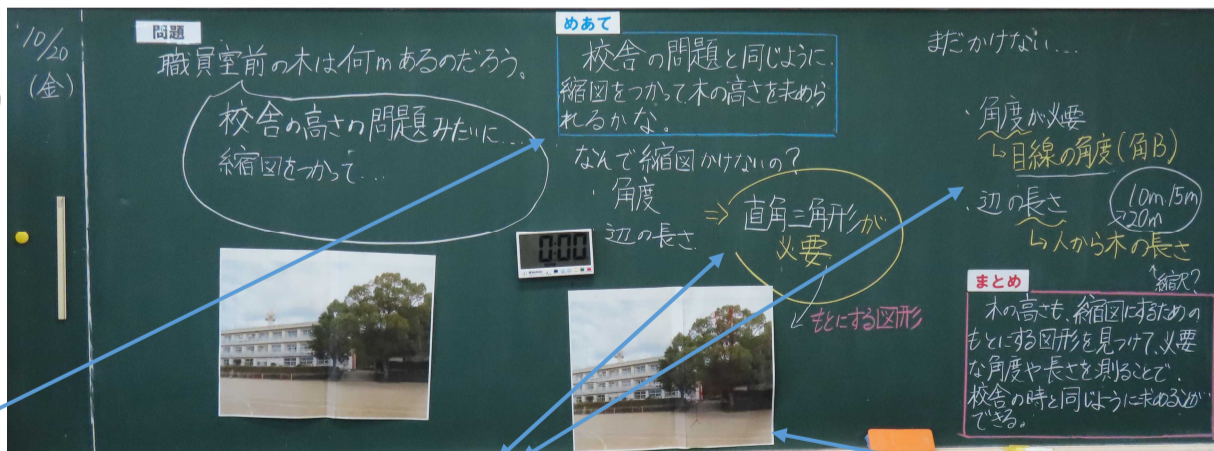 10/20
(金)
問題
職員室前の木は何mあるのだろう。
校舎の高さの問題みたいに…
縮図をつかって…
めあて
校舎の問題と同じように、
縮図をつかって木の高さを求めら
れるかな。
なんで縮図かけないの?
・角度
・辺の長さ
⇒ 直角三角形が
必要
もとにする図形
0:00
まだかけない…
・角度が必要
↳目線の角度(角B)
・辺の長さ
10m.15m
20m
↳人から木の長さ
↑縮尺?
まとめ
木の高さも、縮図にするための
もとにする図形を見つけて、必要
な角度や長さを測ることで、
校舎の時と同じように求めることが
できる。